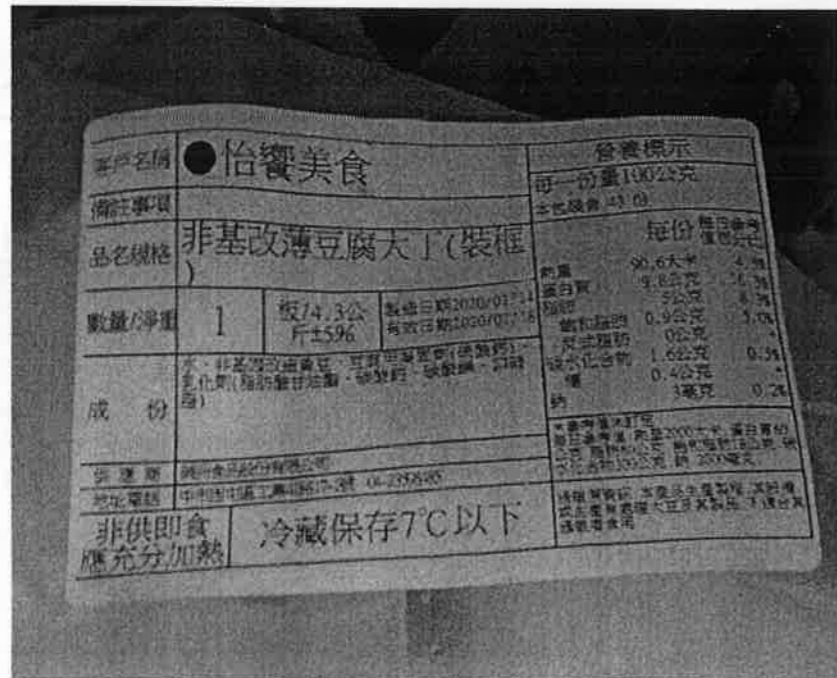 客戶名稱 ●怡饗美食
備註事項
品名規格 非基改薄豆腐大丁(裝框
)
數量/淨重 1 板/4.3公
斤±5%
製造日期2020/01/14
有效日期2020/01/
成 份
水、非基因改造黃豆、豆腐用凝固劑(硫酸鈣)、
乳化劑(脂肪酸甘油酯、碳酸鈣、
脂)
供應商 食品股份有限公司
地址電話
非供即食
應充分加熱
冷藏保存7℃以下
營養標示
每一份量100公克
本包裝含43份
每份
熱量 90.6大卡
蛋白質 9.8公克
脂肪 5公克 8.3%
飽和脂肪 0.9公克 5.0%
反式脂肪 0公克 *
碳水化合物 1.6公克 0.5%
糖 0.4公克 *
鈉 3毫克 0.2%
*參考值未訂定
每日參考值:熱量2000大卡、蛋白質60
公克、脂肪60公克、飽和脂肪18公克、碳
水化合物300公克、鈉 2000毫克
過敏原資訊:本產品生產製程